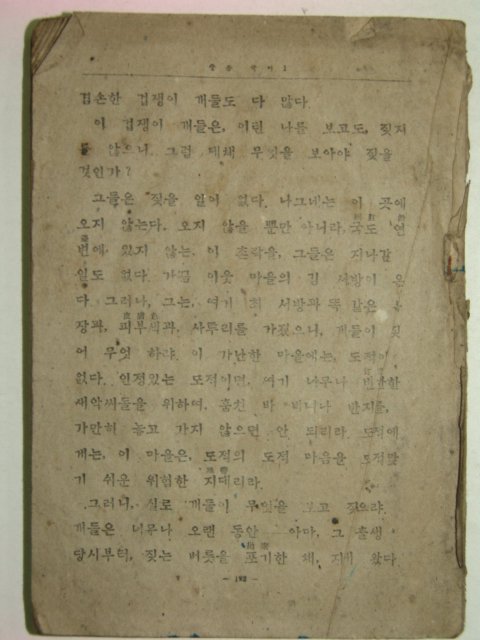 중 등 국 어 1
겁손한 겁쟁이 개들도 다 많다.
이 겁쟁이 개들은, 이런 나를 보고도, 짖지
를 않으니. 그럼 대채 무엇을 보아야 짖을
것인가?
그들은 짖을 일이 없다. 나그네는 이 곳에
오지 않는다. 오지 않을 뿐만 아니라, 국도 연
변에 있지 않는, 이 촌락을, 그들은 지나갈
일도 없다. 가끔 이웃 마을의 김 서방이 온
다. 그러나, 그는, 여기 최 서방과 똑 같은
장과, 피부색과, 사투리를 가졌으니, 개들이 짖
어 무엇 하랴. 이 가난한 마을에는, 도적이
없다. 인정있는 도적이면, 여기 너무나 빈한한
새악씨들을 위하여, 훔친 바 비녀나 반지를,
가만히 놓고 가지 않으면 안 되리라. 도적에
게는, 이 마을은, 도적의 도적 마음을 도적맞
기 쉬운 위험한 지대리라.
그러니, 실로 개들이 무엇을 보고 짖으랴.
개들은 너무나 오랜 동안 — 아마, 그 출생
당시부터, 짖는 버릇을 포기한 채, 지내 왔다.
— 192 —